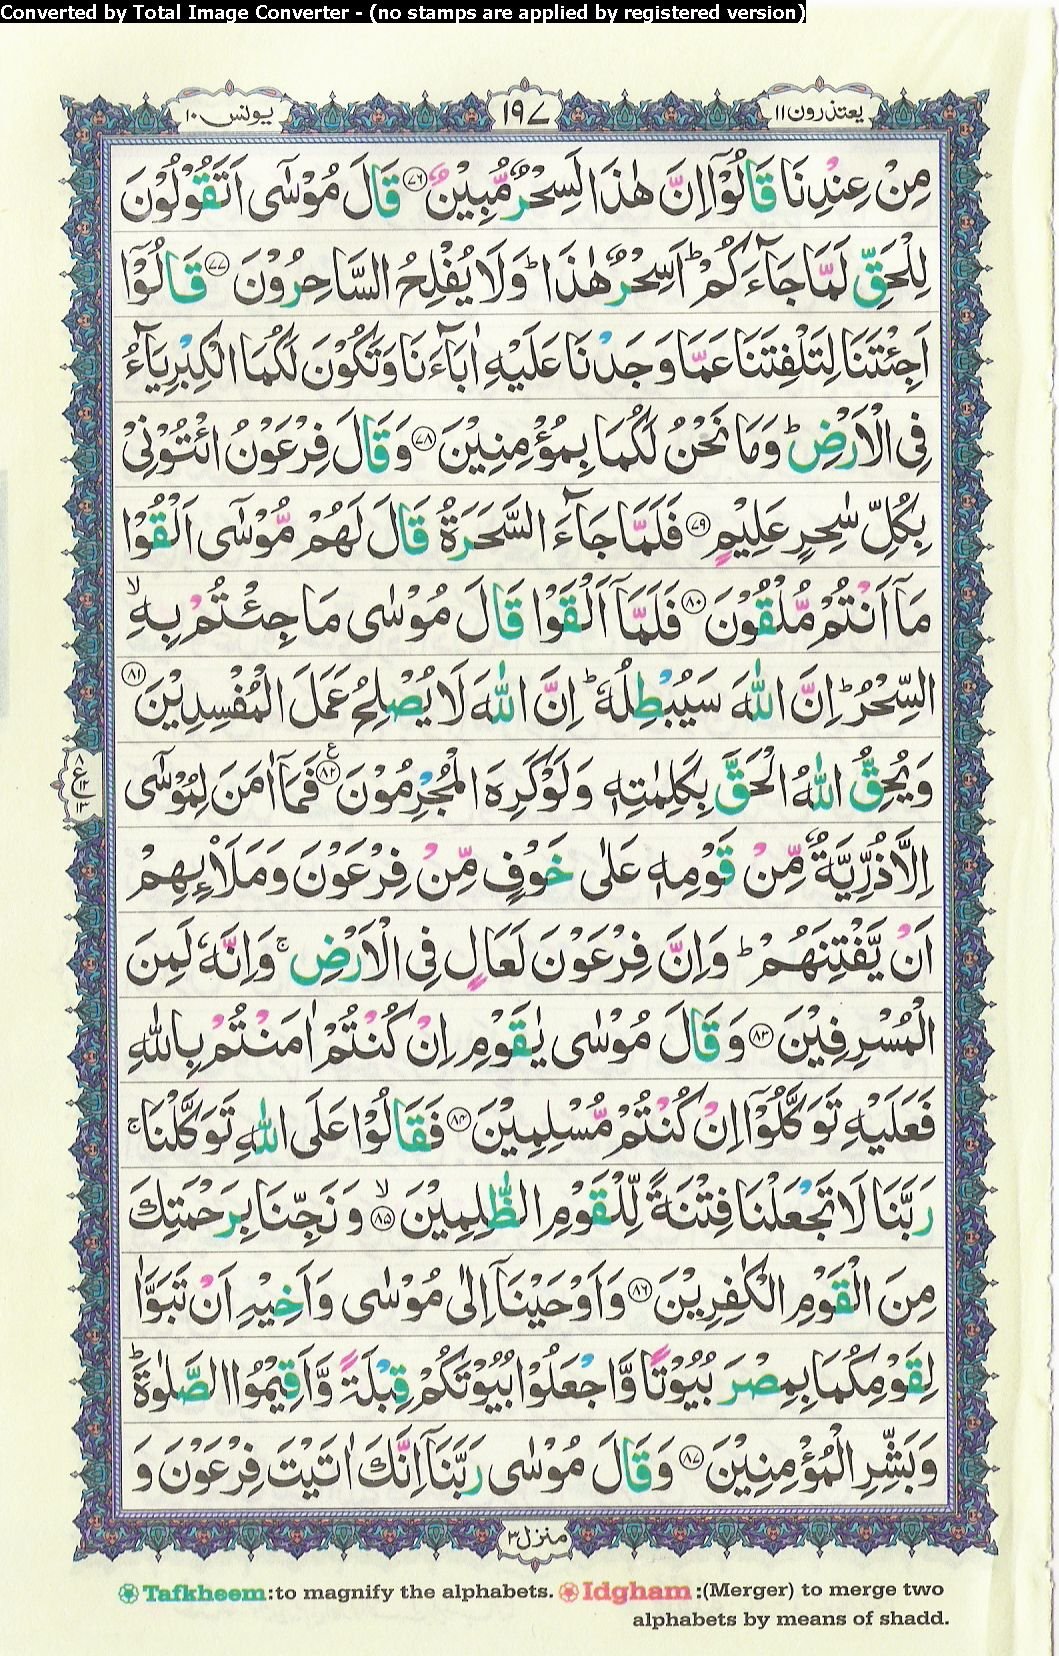 Converted by Total Image Converter - (no stamps are applied by registered version)
يعتذرون ١١ ١٩٧ يونس ١٠
مِنْ عِنْدِنَا قَالُوْۤا اِنَّ هٰذَا لَسِحْرٌ مُّبِيْنٌ ﴿۷۶﴾ قَالَ مُوْسٰۤى اَتَقُوْلُوْنَ
لِلْحَقِّ لَمَّا جَآءَكُمْ ؕ اَسِحْرٌ هٰذَا ؕ وَلَا يُفْلِحُ السَّاحِرُوْنَ ﴿۷۷﴾ قَالُوْۤا
اَجِئْتَنَا لِتَلْفِتَنَا عَمَّا وَجَدْنَا عَلَيْهِ اٰبَآءَنَا وَتَكُوْنَ لَكُمَا الْكِبْرِيَآءُ
فِى الْاَرْضِ ؕ وَمَا نَحْنُ لَكُمَا بِمُؤْمِنِيْنَ ﴿۷۸﴾ وَقَالَ فِرْعَوْنُ ائْتُوْنِىْ
بِكُلِّ سٰحِرٍ عَلِيْمٍ ﴿۷۹﴾ فَلَمَّا جَآءَ السَّحَرَةُ قَالَ لَهُمْ مُّوْسٰۤى اَلْقُوْا
مَاۤ اَنْتُمْ مُّلْقُوْنَ ﴿۸۰﴾ فَلَمَّاۤ اَلْقَوْا قَالَ مُوْسٰى مَا جِئْتُمْ بِهِ ۙ
السِّحْرُ ؕ اِنَّ اللّٰهَ سَيُبْطِلُهٗ ؕ اِنَّ اللّٰهَ لَا يُصْلِحُ عَمَلَ الْمُفْسِدِيْنَ ﴿۸۱﴾
وَيُحِقُّ اللّٰهُ الْحَقَّ بِكَلِمٰتِهٖ وَلَوْ كَرِهَ الْمُجْرِمُوْنَ ﴿۸۲﴾ ع فَمَاۤ اٰمَنَ لِمُوْسٰۤى
۸ ع ۱۲ ۱۳
اِلَّا ذُرِّيَّةٌ مِّنْ قَوْمِهٖ عَلٰى خَوْفٍ مِّنْ فِرْعَوْنَ وَمَلَا۟ئِهِمْ
اَنْ يَّفْتِنَهُمْ ؕ وَاِنَّ فِرْعَوْنَ لَعَالٍ فِى الْاَرْضِ ۚ وَاِنَّهٗ لَمِنَ
الْمُسْرِفِيْنَ ﴿۸۳﴾ وَقَالَ مُوْسٰى يٰقَوْمِ اِنْ كُنْتُمْ اٰمَنْتُمْ بِاللّٰهِ
فَعَلَيْهِ تَوَكَّلُوْۤا اِنْ كُنْتُمْ مُّسْلِمِيْنَ ﴿۸۴﴾ فَقَالُوْا عَلَى اللّٰهِ تَوَكَّلْنَا ۚ
رَبَّنَا لَا تَجْعَلْنَا فِتْنَةً لِّلْقَوْمِ الظّٰلِمِيْنَ ۙ ﴿۸۵﴾ وَنَجِّنَا بِرَحْمَتِكَ
مِنَ الْقَوْمِ الْكٰفِرِيْنَ ﴿۸۶﴾ وَاَوْحَيْنَاۤ اِلٰى مُوْسٰى وَاَخِيْهِ اَنْ تَبَوَّاٰ
لِقَوْمِكُمَا بِمِصْرَ بُيُوْتًا وَّاجْعَلُوْا بُيُوْتَكُمْ قِبْلَةً وَّاَقِيْمُوا الصَّلٰوةَ ؕ
وَبَشِّرِ الْمُؤْمِنِيْنَ ﴿۸۷﴾ وَقَالَ مُوْسٰى رَبَّنَاۤ اِنَّكَ اٰتَيْتَ فِرْعَوْنَ وَ
منزل ۳
Tafkheem: to magnify the alphabets. Idgham :(Merger) to merge two
alphabets by means of shadd.